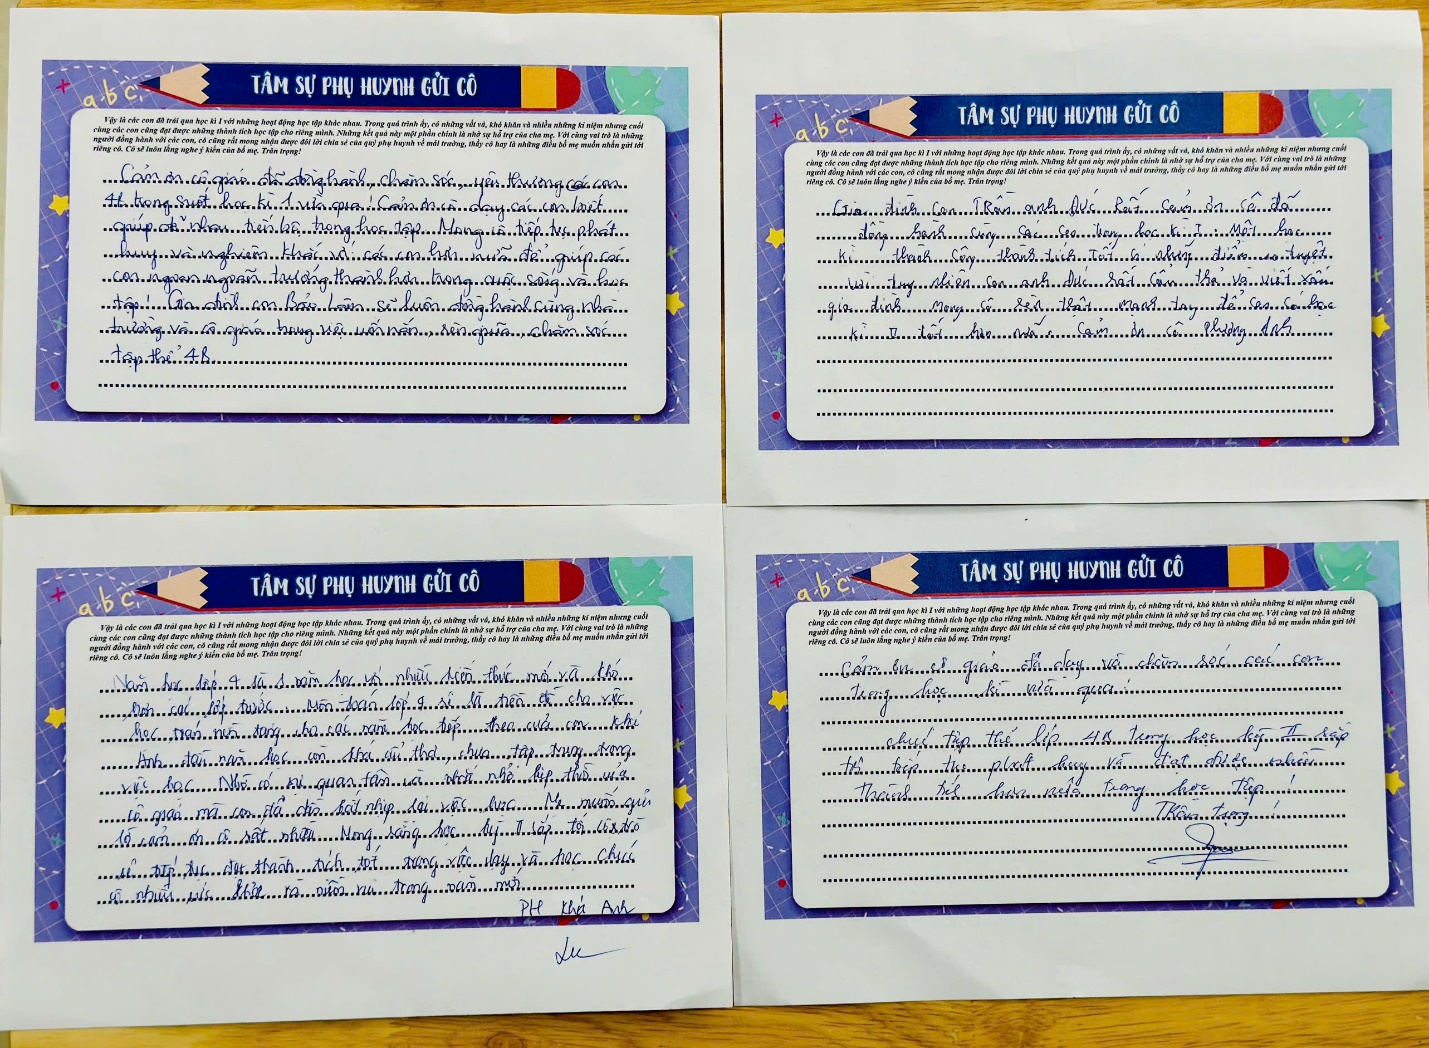 TÂM SỰ PHỤ HUYNH GỬI CÔ
a b c
Vậy là các con đã trải qua học kì I với những hoạt động học tập khác nhau. Trong quá trình ấy, có những vất vả, khó khăn và nhiều những kỉ niệm nhưng cuối
cùng các con cũng đạt được những thành tích học tập cho riêng mình. Những kết quả này một phần chính là nhờ sự hỗ trợ của cha mẹ. Với cùng vai trò là những
người đồng hành với các con, cô cũng rất mong nhận được đôi lời chia sẻ của quý phụ huynh về mái trường, thầy cô hay là những điều bố mẹ muốn nhắn gửi tới
riêng cô. Cô sẽ luôn lắng nghe ý kiến của bố mẹ. Trân trọng!
Cảm ơn cô giáo đã đồng hành, chăm sóc, yêu thương các con
4B trong suốt học kì 1 vừa qua! Cảm ơn cô dạy các con biết
giúp đỡ nhau tiến bộ trong học tập. Mong cô tiếp tục phát
huy và nghiêm khắc với các con hơn nữa để giúp các
con ngoan ngoãn trưởng thành hơn trong cuộc sống và học
tập! Gia đình con Bảo Lâm sẽ luôn đồng hành cùng nhà
trường và cô giáo trong việc uốn nắn, rèn giũa, chăm sóc
tập thể 4B.
TÂM SỰ PHỤ HUYNH GỬI CÔ
a b c
Vậy là các con đã trải qua học kì I với những hoạt động học tập khác nhau. Trong quá trình ấy, có những vất vả, khó khăn và nhiều những kỉ niệm nhưng cuối
cùng các con cũng đạt được những thành tích học tập cho riêng mình. Những kết quả này một phần chính là nhờ sự hỗ trợ của cha mẹ. Với cùng vai trò là những
người đồng hành với các con, cô cũng rất mong nhận được đôi lời chia sẻ của quý phụ huynh về mái trường, thầy cô hay là những điều bố mẹ muốn nhắn gửi tới
riêng cô. Cô sẽ luôn lắng nghe ý kiến của bố mẹ. Trân trọng!
Gia đình con Trần Anh Đức rất cảm ơn cô đã
đồng hành cùng các con trong học kì I. Một học
kì thành công thành tích tốt có những điểm tuyệt
vời tuy nhiên con Anh Đức rất cẩu thả và viết xấu
gia đình mong cô rèn thật mạnh tay để con có học
kì II tốt hơn nữa. Cảm ơn cô Phương Anh
TÂM SỰ PHỤ HUYNH GỬI CÔ
a b c
Vậy là các con đã trải qua học kì I với những hoạt động học tập khác nhau. Trong quá trình ấy, có những vất vả, khó khăn và nhiều những kỉ niệm nhưng cuối
cùng các con cũng đạt được những thành tích học tập cho riêng mình. Những kết quả này một phần chính là nhờ sự hỗ trợ của cha mẹ. Với cùng vai trò là những
người đồng hành với các con, cô cũng rất mong nhận được đôi lời chia sẻ của quý phụ huynh về mái trường, thầy cô hay là những điều bố mẹ muốn nhắn gửi tới
riêng cô. Cô sẽ luôn lắng nghe ý kiến của bố mẹ. Trân trọng!
Năm học lớp 4 là 1 năm học với nhiều kiến thức mới và khó
hơn các lớp trước. Môn toán lớp 4 sẽ là tiền đề cho việc
học toán nền tảng cho các năm học tiếp theo của con. Khả
Anh đầu năm học còn khá thơ, chưa tập trung trong
việc học. Nhờ có sự quan tâm và nhắc nhở kịp thời của
cô giáo mà con đã dần bắt nhịp lại việc học. Mẹ muốn gửi
lời cảm ơn cô rất nhiều. Mong rằng học kỳ II sắp tới cô trò
sẽ tiếp tục đạt thành tích tốt trong việc dạy và học. Chúc
cô nhiều sức khỏe và niềm vui trong năm mới
PH Khả Anh
TÂM SỰ PHỤ HUYNH GỬI CÔ
a b c
Vậy là các con đã trải qua học kì I với những hoạt động học tập khác nhau. Trong quá trình ấy, có những vất vả, khó khăn và nhiều những kỉ niệm nhưng cuối
cùng các con cũng đạt được những thành tích học tập cho riêng mình. Những kết quả này một phần chính là nhờ sự hỗ trợ của cha mẹ. Với cùng vai trò là những
người đồng hành với các con, cô cũng rất mong nhận được đôi lời chia sẻ của quý phụ huynh về mái trường, thầy cô hay là những điều bố mẹ muốn nhắn gửi tới
riêng cô. Cô sẽ luôn lắng nghe ý kiến của bố mẹ. Trân trọng!
Cảm ơn cô giáo đã dạy và chăm sóc các con
trong học kì vừa qua!
Chúc tập thể lớp 4B trong học kỳ II sắp
tới tiếp tục phát huy và đạt được nhiều
thành tích hơn nữa trong học tập!
Trân trọng!